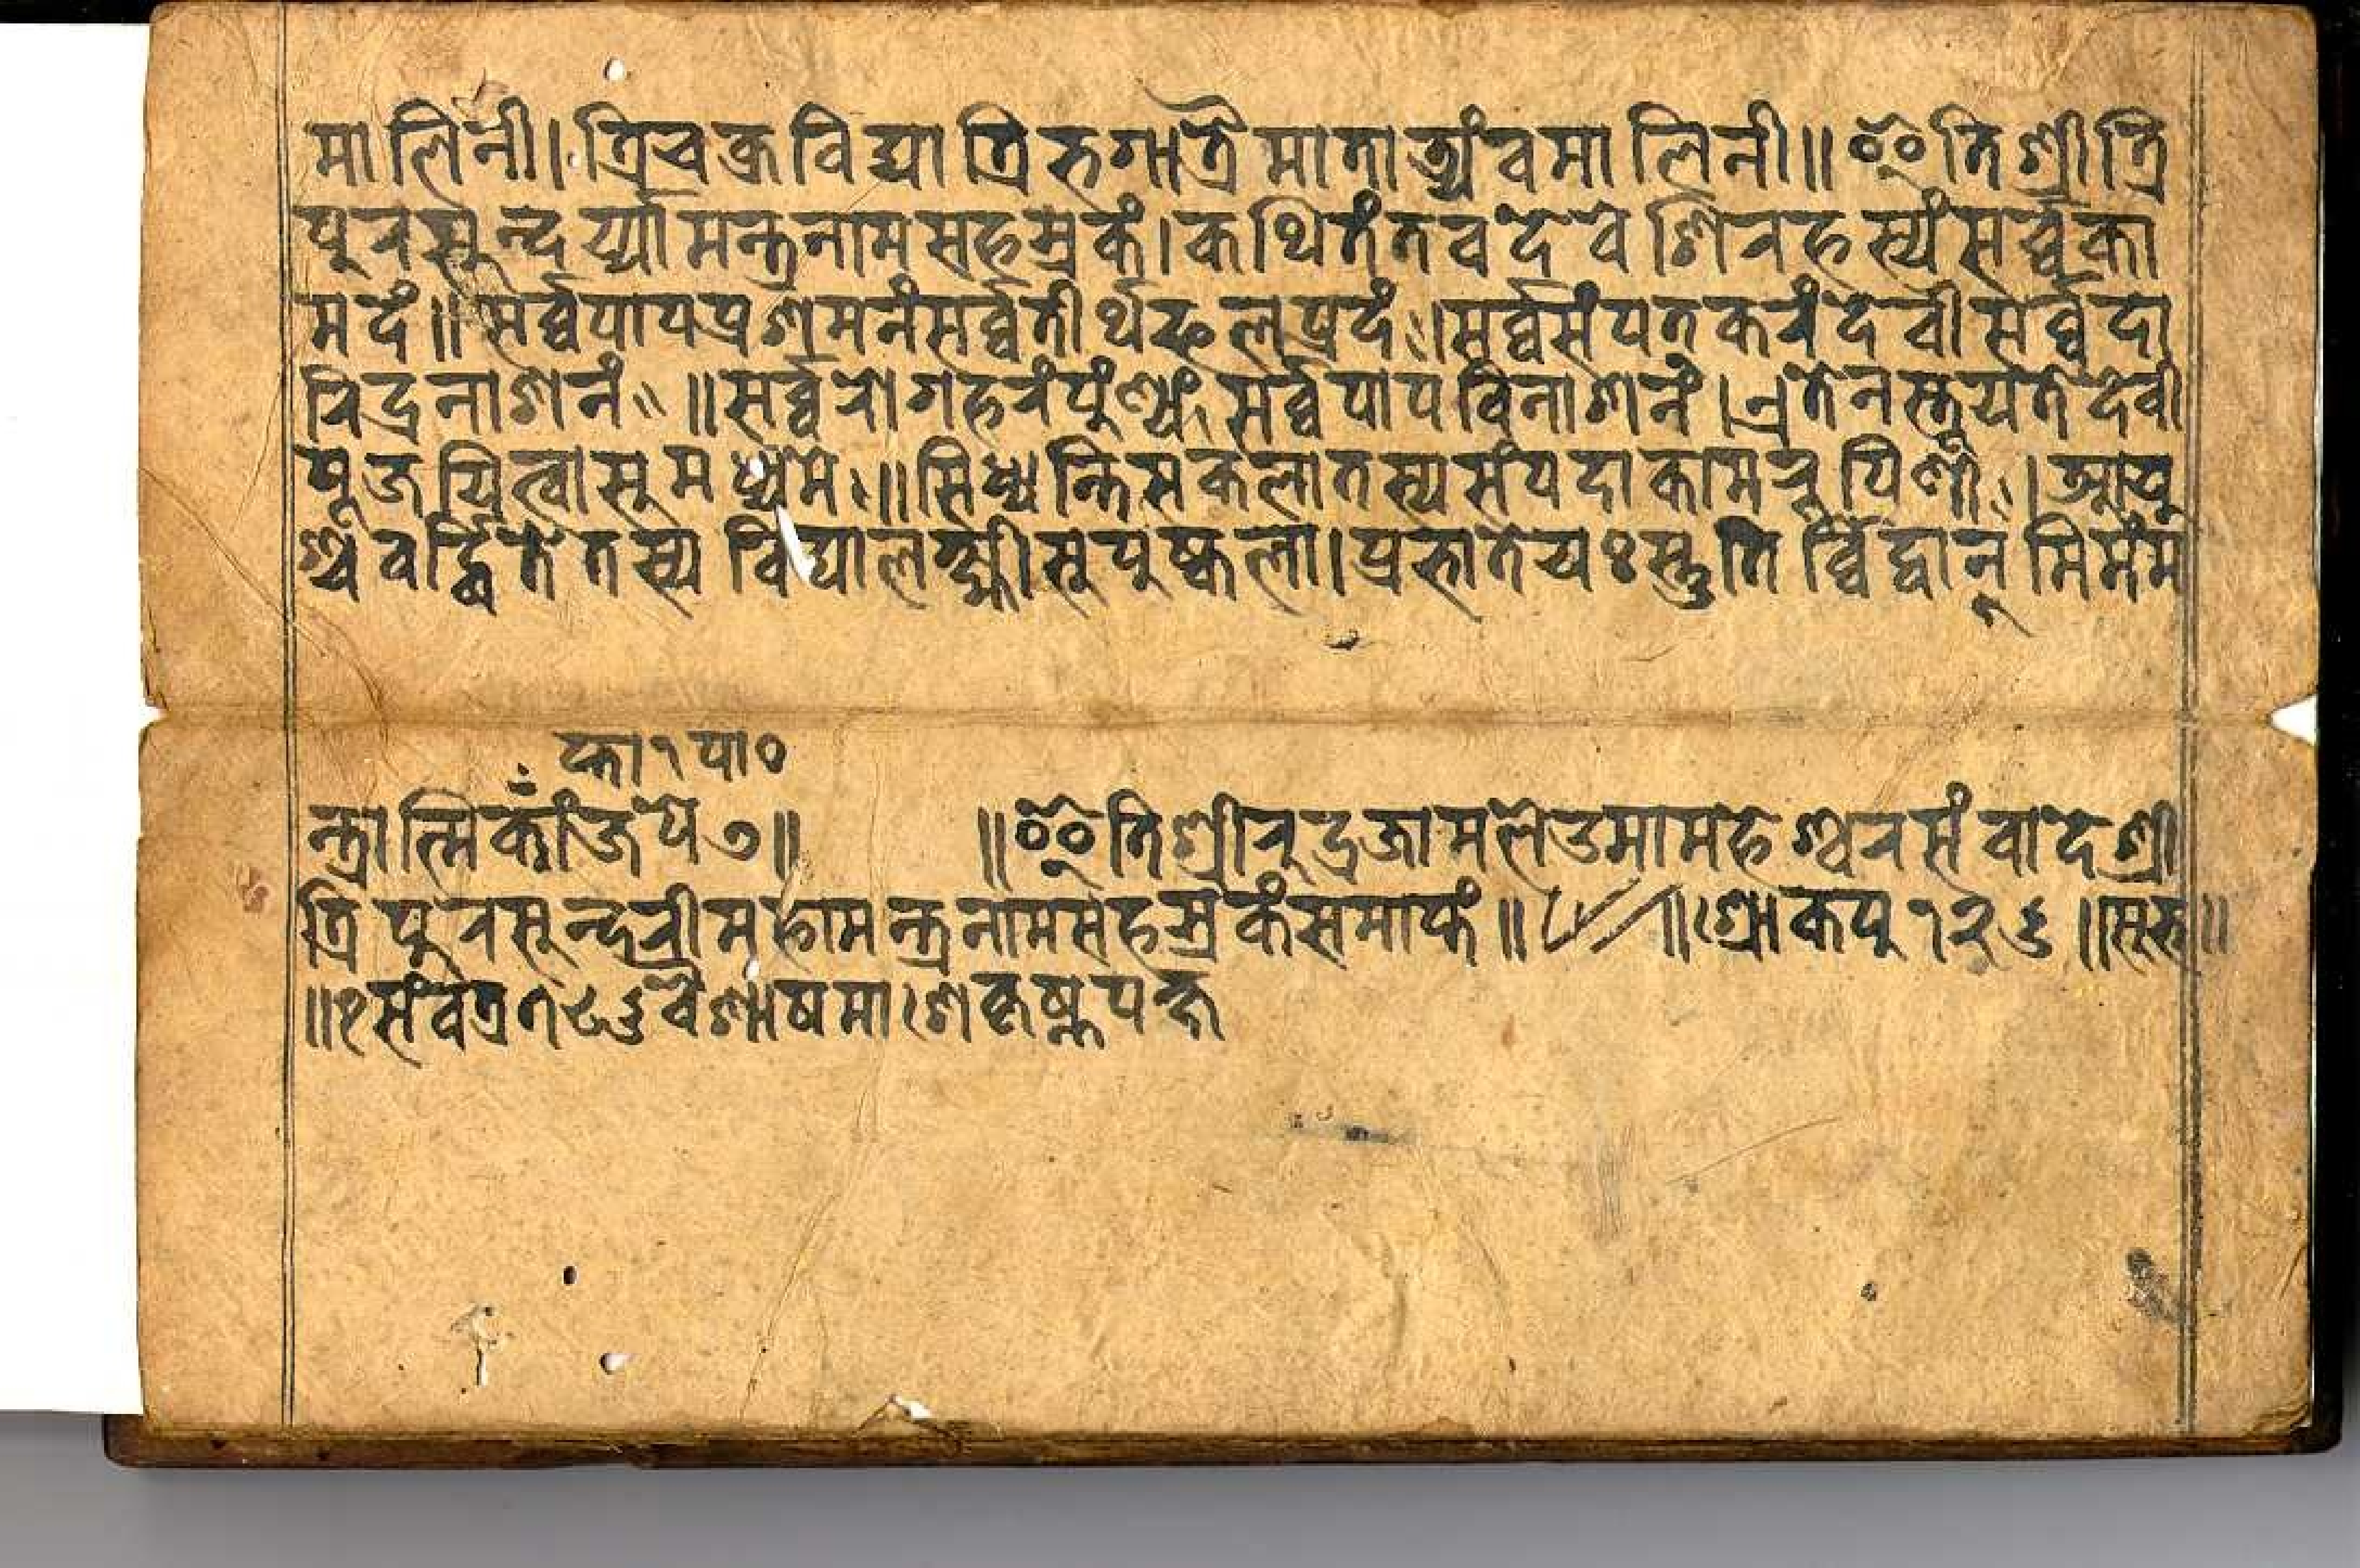 मालिनी। त्रिचक्रविद्या त्रिभगा त्रैमाता त्र्यंवमालिनी॥ इति श्रीत्रि
पुरसुन्दर्य्या मन्त्रनामसहस्रकं। कथितं तव देवेशि रहस्यं सर्व्वका
मदं॥ सर्व्वपापप्रशमनं सर्व्वतीर्थफलप्रदं। सर्व्वसंपत्करं देवी सर्व्वदा
रिद्रनाशनं॥ सर्व्वरोगहरं पुंण्यं सर्व्वपापविनाशनं। एतेन स्तूयते देवी
पूजयित्वा सुमध्यमे॥ सिध्यन्ति सकला तस्य संपदा कामरूपिणी। आयु
श्च वर्द्धिते तस्य विद्यालक्ष्मी सुपुष्कला। प्रभाते यः स्तुति र्व्विद्वान् मिमं म
का १ पा०
न्त्रात्मिकां जपे७॥ ॥ इति श्रीरुद्रजामले उमामहेश्वरसंवादे श्री
त्रिपुरसुन्दरी महामन्त्रनामसहस्रकं समाप्तं॥ ॥ श्लोकपु १२६॥ सुभ॥
॥१ संवत्र ९८६ वैशाषमाशे कृष्णपक्ष